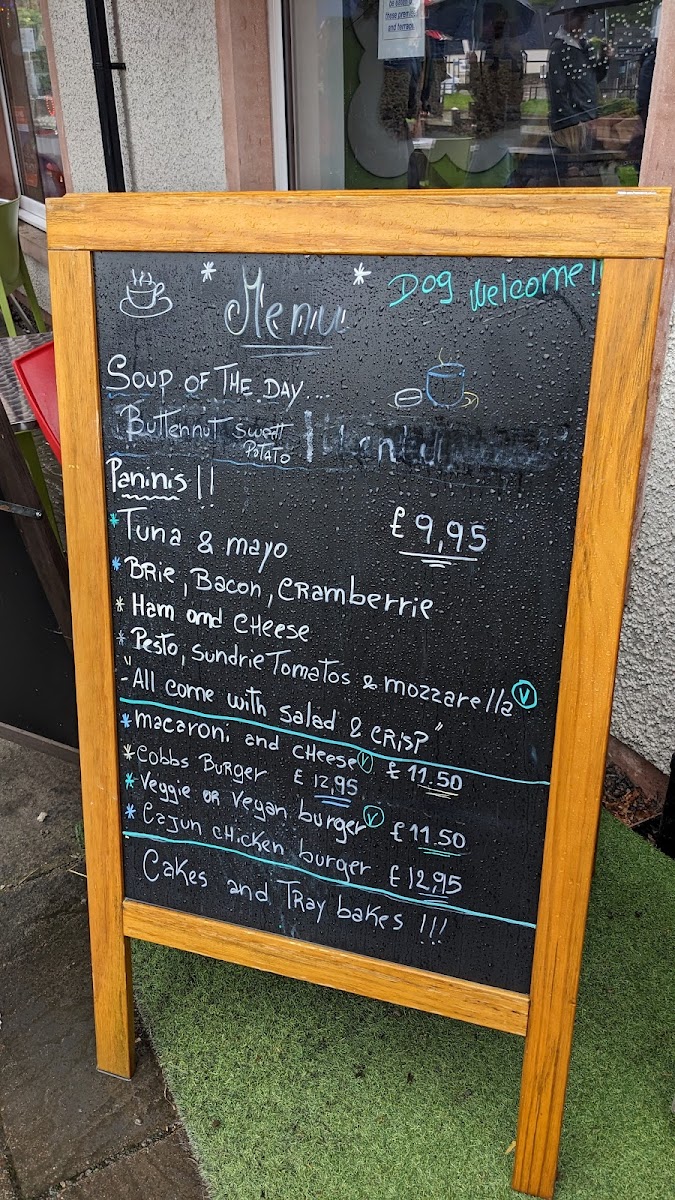 these premises
and terrace
* Menu *
Dog Welcome!!
SOUP OF THE DAY...
Butternut sweet
POTATO
Paninis!!
*Tuna & mayo
£9,95
*BRie, Bacon, CRamberrie
*Ham and CHeese
*Pesto, sundrie Tomatos & mozzarella V
"-All come with salad & CRISP"
*macaroni and CHeese V £11.50
*Cobbs Burger £12,95
*Veggie or Vegan burger V £11.50
*Cajun cHicken burger £12,95
Cakes and TRay bakes!!!